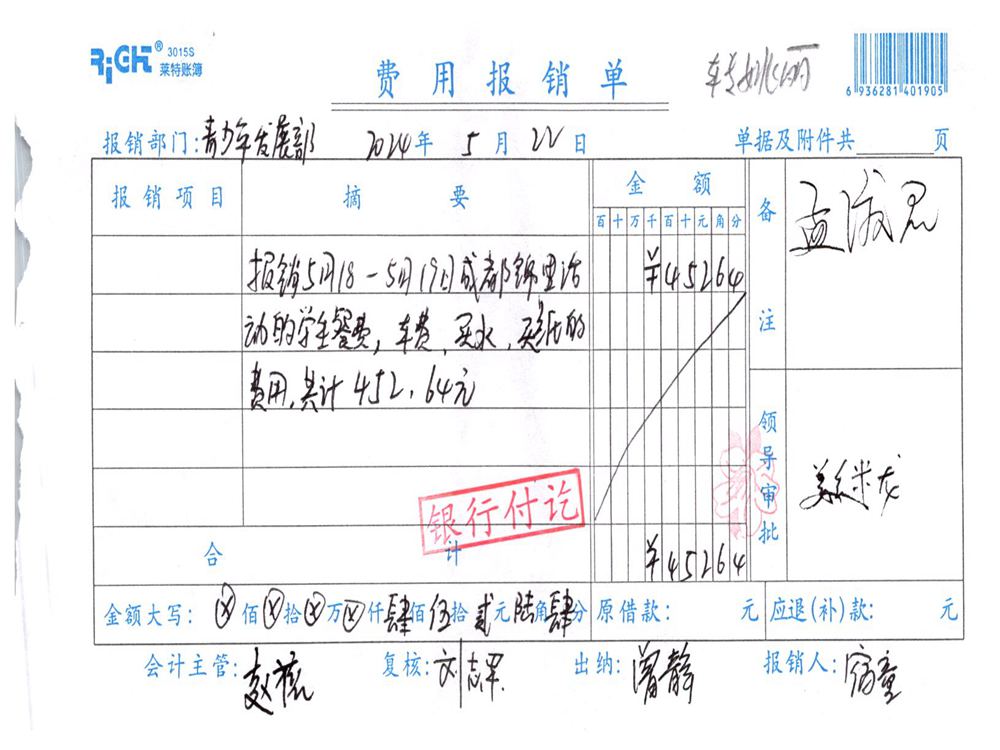 RiGHT® 3015S
莱特账簿
费用报销单
转姚丽
6 936281 401905
报销部门:青少年发展部 2024年5月22日 单据及附件共 页
报销项目 摘要 金额 备注
百十万千百十元角分
报销5月18-5月19日成都锦里活 ¥45264
动的学生餐费,车费,买水,买纸的
费用,共计452.64元
领导审批
银行付讫
合计 ¥45264
金额大写:ⓧ佰ⓧ拾ⓧ万ⓧ仟肆佰伍拾贰元陆角肆分 原借款: 元 应退(补)款: 元
会计主管: 复核:刘志军 出纳:曾静 报销人:宿童